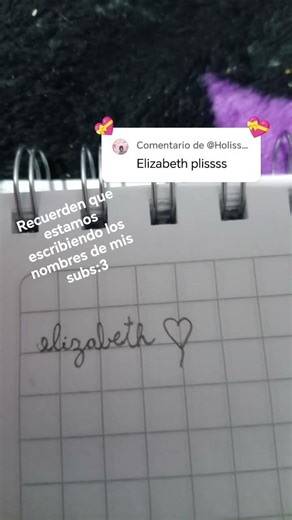 Comentario de @Holiss...
Elizabeth plissss
Recuerden que
estamos
escribiendo los
nombres de mis
subs:3
elizabeth